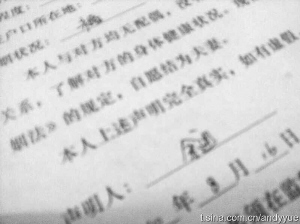 程度:
户口所在地:
状况:
本人与对方均无配偶,没
关系,了解对方的身体健康状况。现
姻法》的规定,自愿结为夫妻。
本人上述声明完全真实,如有虚假
声明人:
年 8 月 16 日
t.sina.com.cn/andyyue